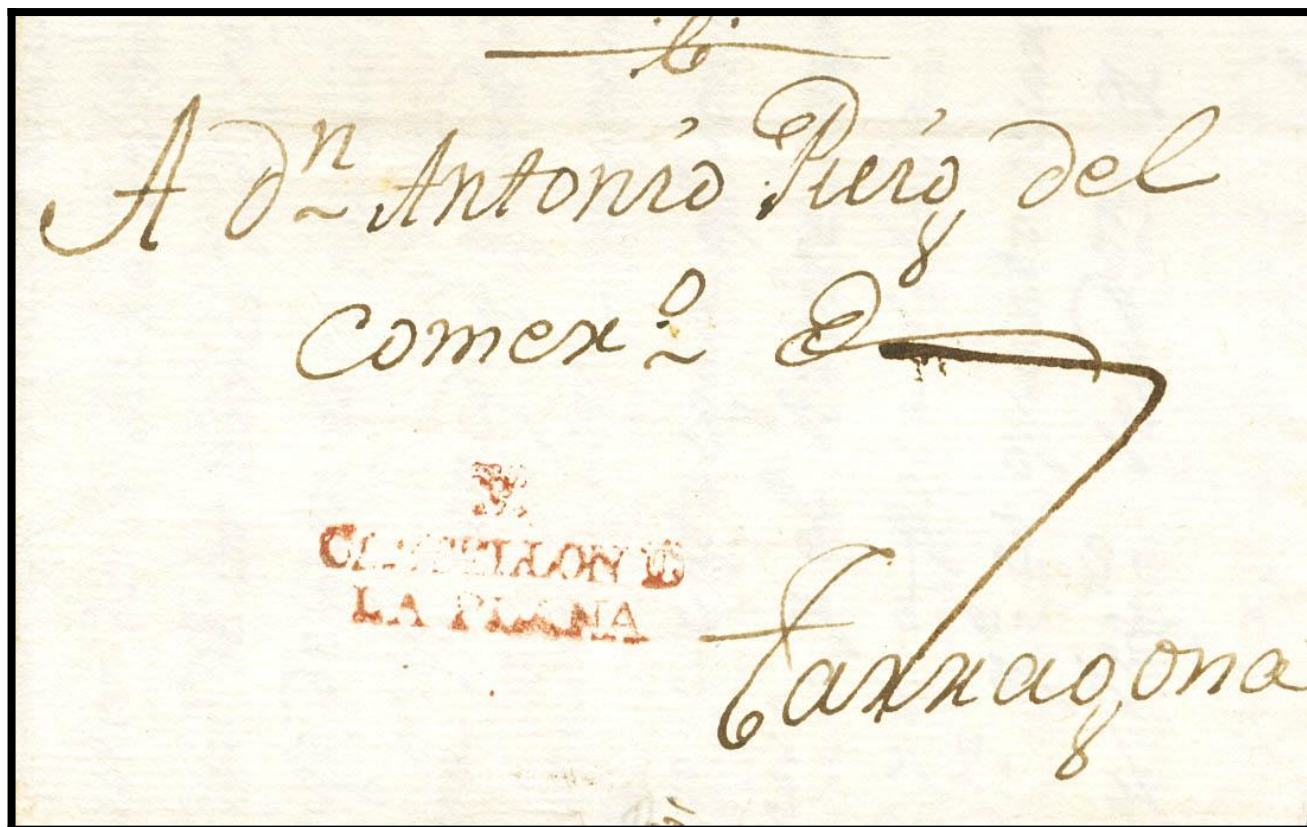 A dⁿ Antonio Puig del
comerº D
CASTELLON D
LA PLANA
Tarragona